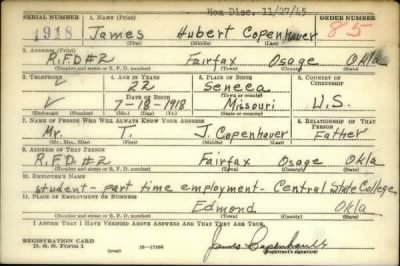 Hon Disc. 11/27/45
SERIAL NUMBER 1. NAME (Print) ORDER NUMBER
1918 James Hubert Copenhaver 85
(First) (Middle) (Last)
2. ADDRESS (Print)
R.F.D #2 Fairfax Osage Okla
(Number and street or R. F. D. number) (Town) (County) (State)
3. TELEPHONE 4. AGE IN YEARS 5. PLACE OF BIRTH 6. COUNTRY OF CITIZENSHIP
22 Seneca
DATE OF BIRTH (Town or county)
7-18-1918 Missouri U.S.
(Exchange) (Number) (Mo.) (Day) (Yr.) (State or country)
7. NAME OF PERSON WHO WILL ALWAYS KNOW YOUR ADDRESS 8. RELATIONSHIP OF THAT PERSON
Mr. T. J. Copenhaver Father
(Mr., Mrs., Miss) (First) (Middle) (Last)
9. ADDRESS OF THAT PERSON
R.F.D. #2 Fairfax Osage Okla
(Number and street or R. F. D. number) (Town) (County) (State)
10. EMPLOYER'S NAME
student - part time employment - Central State College
11. PLACE OF EMPLOYMENT OR BUSINESS
Edmond Okla
(Number and street or R. F. D. number) (Town) (County) (State)
I AFFIRM THAT I HAVE VERIFIED ABOVE ANSWERS AND THAT THEY ARE TRUE.
REGISTRATION CARD
D. S. S. Form 1 16-17105 James Copenhaver
(Registrant's signature)